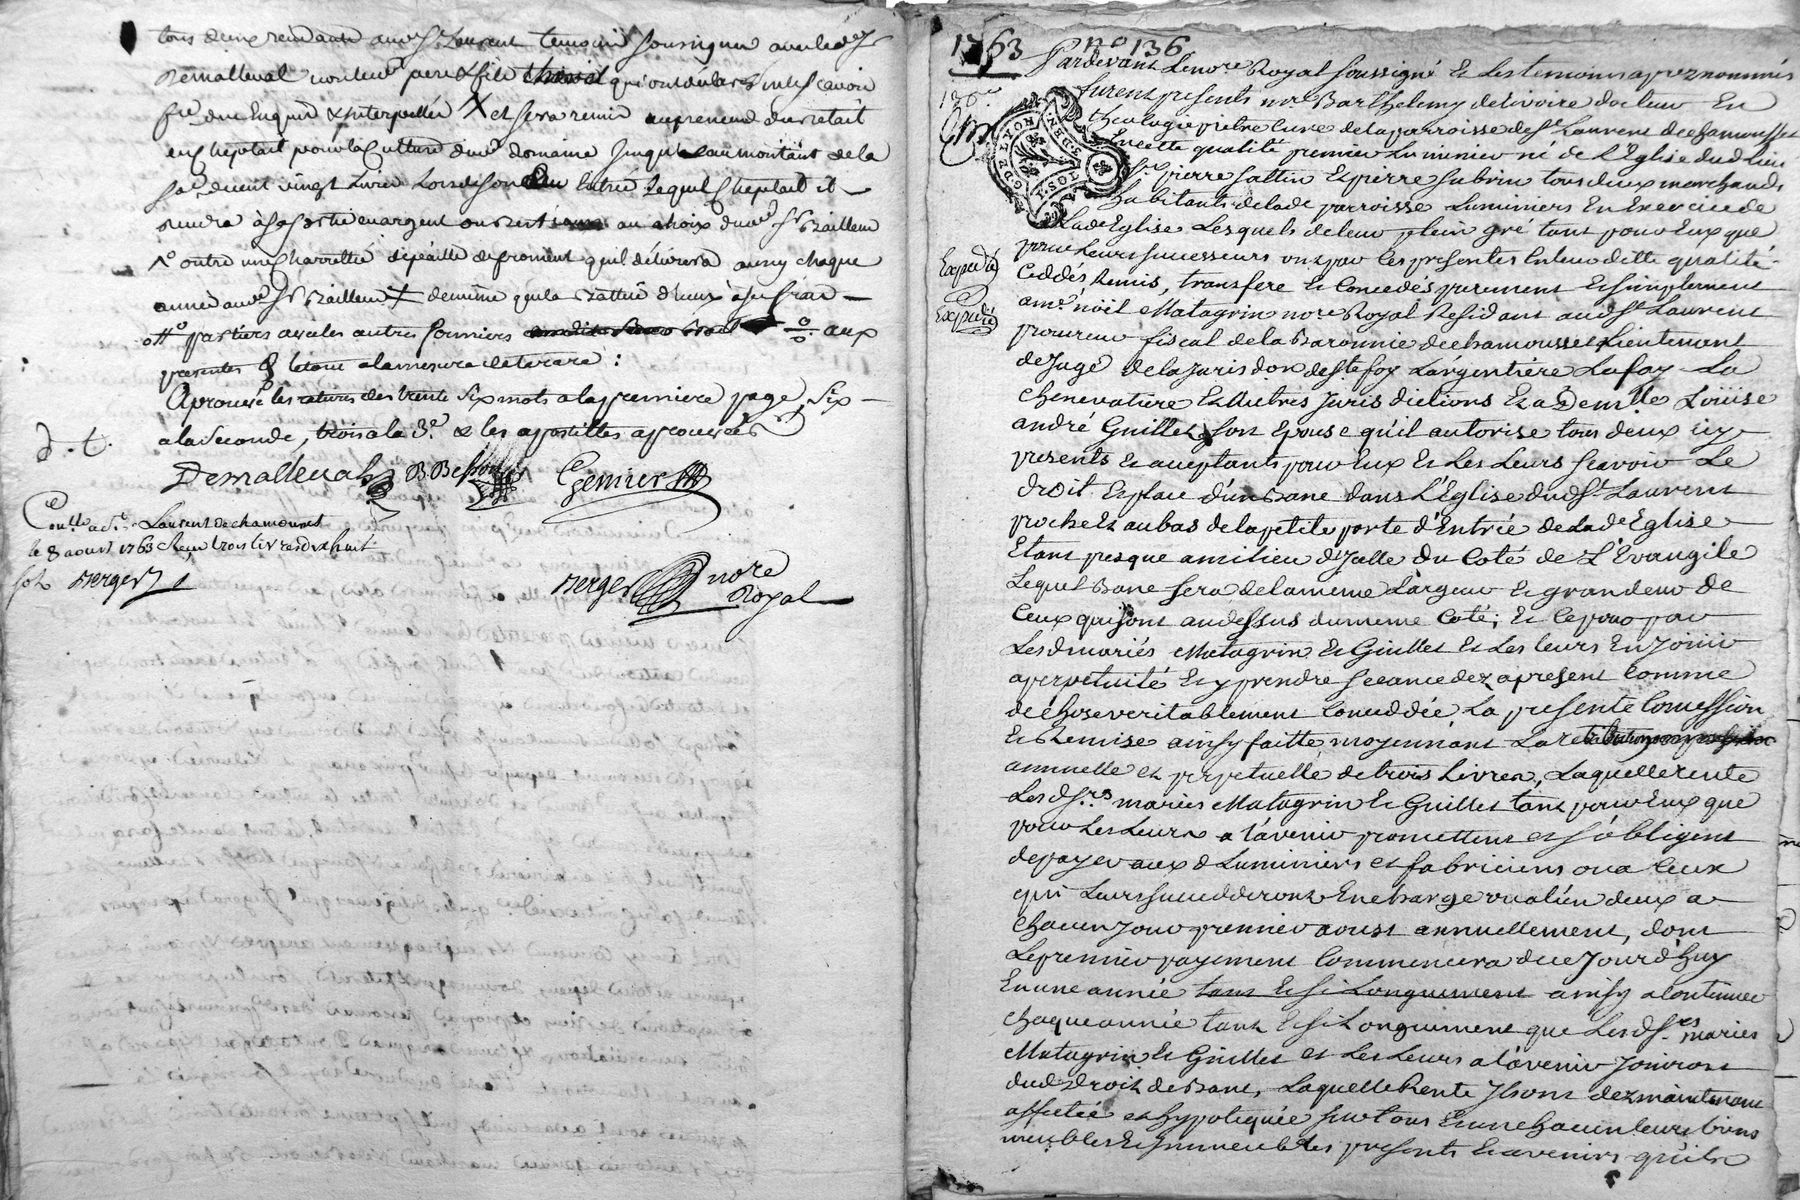 tous deux residants aud St Laurent temoins soussignés avec led. Sr
Demalleval pere & fils qui ont declaré ne scavoir
fre. du ce enquis & interpellés X et sera remis au preneur du betail
en cheptail pour la Culture dud. domaine jusqu'au montant de la
so.e de cent vingt Livres Lors de son Entrée Lequel Cheptail il
rendra à sa sortie en argent ou bestiaux au choix dud. Sr Bailleur
1o outre une charrettée de paille de froment qu'il délivrera aussy chaque
année aud. Sr Bailleur
partiers avec les autres fermiers aux
presentes & le tout a la mesure de tarare :
Aprouvé les ratures des trente six mots a la premiere page, Six
a la seconde, trois a la 3e. & les apostilles aprouvées
d. t.
Demalleval B Besson Genier
Con.lle a St. Laurent de chamousset
le 8 aoust 1763 Reçu trois livres dix huit
sols Berger
Berger nore
Royal
1763 no 136
Pardevant Le nore. Royal soussigné Et Les temoins apres nommés
furent presents mre Barthelemy delivoire docteur En
theologie pretre Curé de la parroisse de St Laurent de chamousset
En cette qualité premier Luminier né de L'Eglise dud Lieu
Sr. pierre sattin Et pierre subrin tous deux marchands
habitants de lade parroisse Luminiers En Exercice de
Lade Eglise Lesquels de leur plein gré tant pour Eux que
Expedié
pour Leurs successeurs ont par les presentes En leur ditte qualité
Ceddés, Remis, transferé Et Concedés purement Et simplement
Expedié
a mre. nöel Matagrin nore Royal Residant aud St Laurent
procureur fiscal de la Baronnie de chamousset Lieutenant
de Juge de la Jurisdon de Ste foy L'argentiere Lafay La
Chenevatiere Et Autres Jurisdictions Et a Demlle Loüise
andré Guillet son Epouse qu'il autorise tous deux icy
presents Et acceptants pour Eux Et Les Leurs scavoir Le
droit Et place d'un Banc dans L'Eglise dud St Laurent
proche Et au bas de la petite porte d'Entrée de Lade Eglise
Etant presque a milieu d'Jcelle du Coté de L'Evangile
Lequel Banc sera de la meme Largeur Et grandeur de
Ceux qui sont au dessus du meme Coté; Et Ce pour par
Lesd mariés Matagrin Et Guillet Et Les leurs En Jouir
a perpetuité Et y prendre sceance dez a present Comme
de chose veritablement Conceddée, La presente Concession
Et Remise ainsy faitte, moyennant La
annuelle et perpetuelle de trois Livres, Laquelle rente
Les dsrs mariés Matagrin Et Guillet tant pour Eux que
pour Les Leurs a l'avenir promettent et s'obligent
de payer aux d Luminiers et fabriciens ou a Ceux
qui Leur succedderont En charge ou a l'un deux a
Chacun Jour premier aoust annuellement, dont
Le premier payement Commencera de ce Jourd'huy
En une année tant Et si Longuement ainsy a Continuer
chaque année tant Et si Longuement que Les dsrs mariés
Matagrin Et Guillet et Les Leurs a l'avenir Jouiront
dud Droit de Banc, Laquelle Rente Jls ont dez maintenant
affectée et hypotequée sur tous Et un chacun leurs biens
meubles Et Jmmeubles presents Et avenirs qu'ils